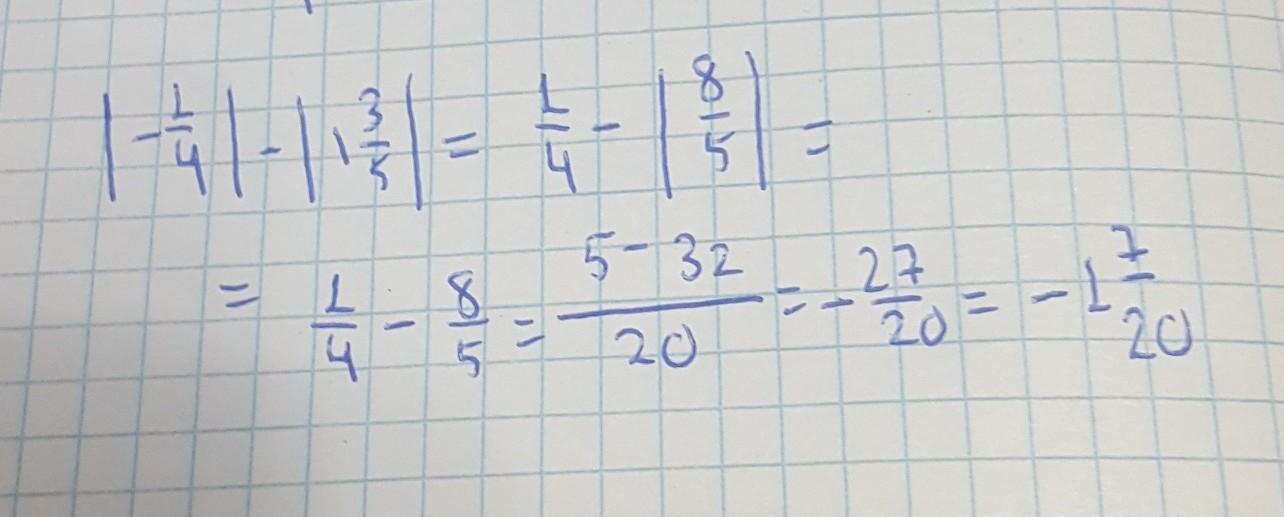 |-1/4| - |1 3/5| = 1/4 - |8/5| =
= 1/4 - 8/5 = (5 - 32)/20 = - 27/20 = - 1 7/20